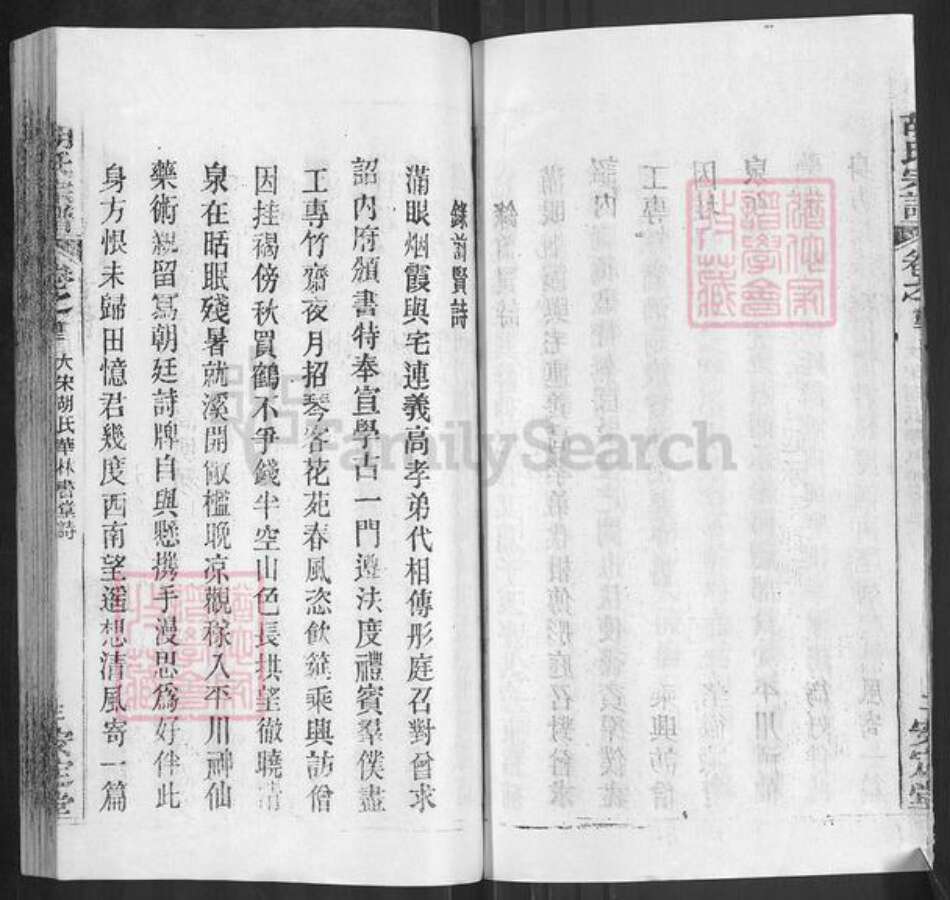 錄前賢詩
滿眼烟霞與宅連義高孝弟代相傳彤庭召對曾求
詔內府頒書特奉宣學古一門遵法度禮賓羣僕盡
工專竹齋夜月招琴客花苑春風恣飲筵乘興訪僧
因挂褐傍秋買鶴不爭錢半空山色長拱望徹曉清
泉在眤眠殘暑就溪開敞檻晚凉觀稼入平川神仙
藥術親留寫朝廷詩牌自與懸攜手漫思爲好伴此
身方惧未歸田憶君幾度西南望遥想清風寄一篇
大宋胡氏華林書堂詩
胡氏宗譜 卷之
三 安定堂
胡氏宗譜 卷之
安定堂
FamilySearch